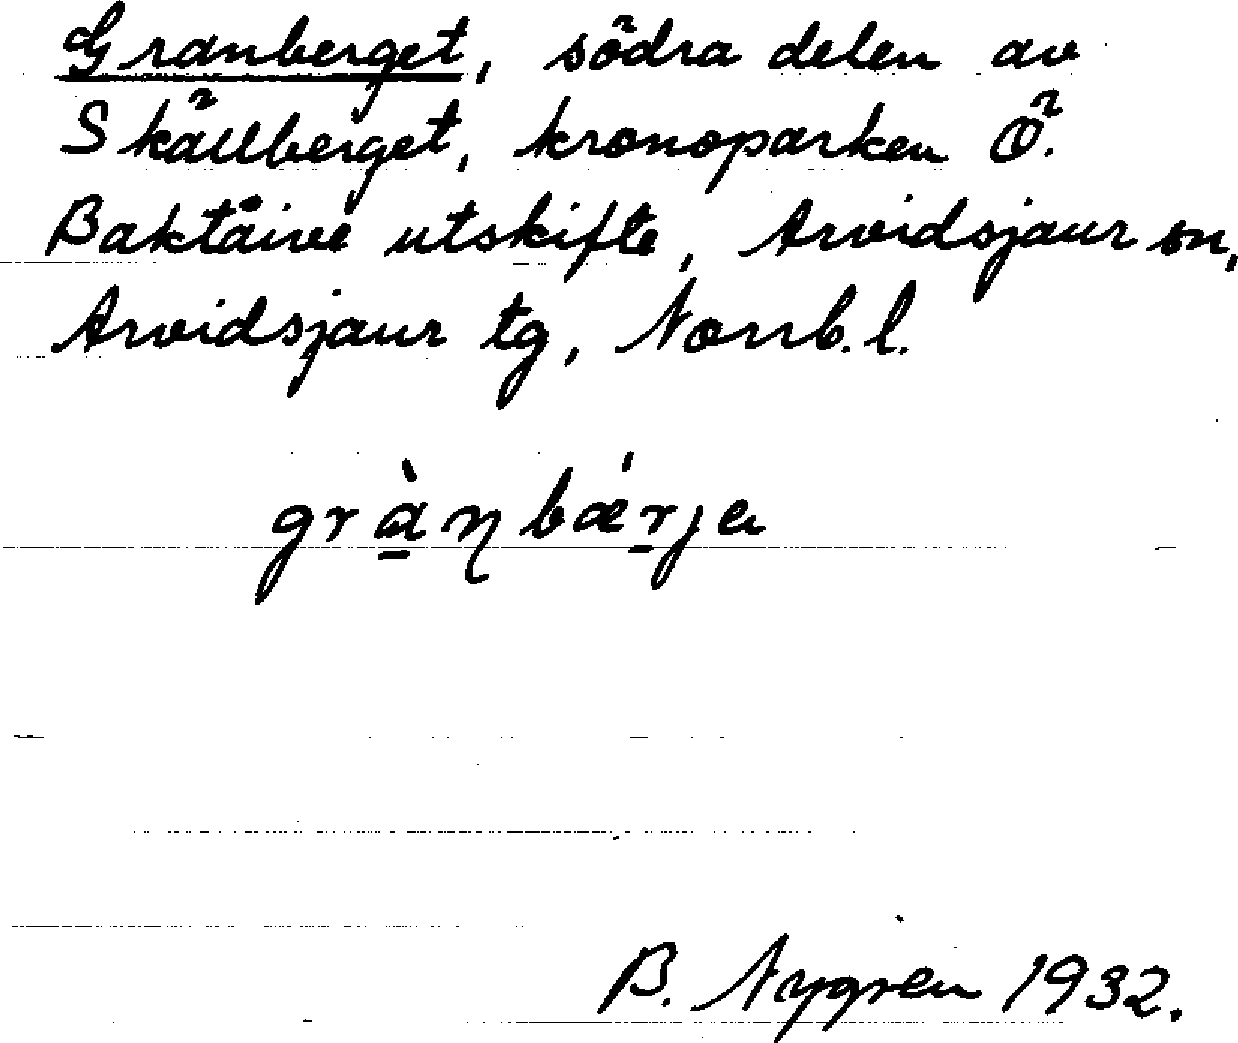 Granberget, södra delen av
Skällberget, kronoparken Ö.
Baktåive utskifte, Arvidsjaur sn,
Arvidsjaur tg, Norrb. l.
grànbǽrja
B. Nygren 1932.